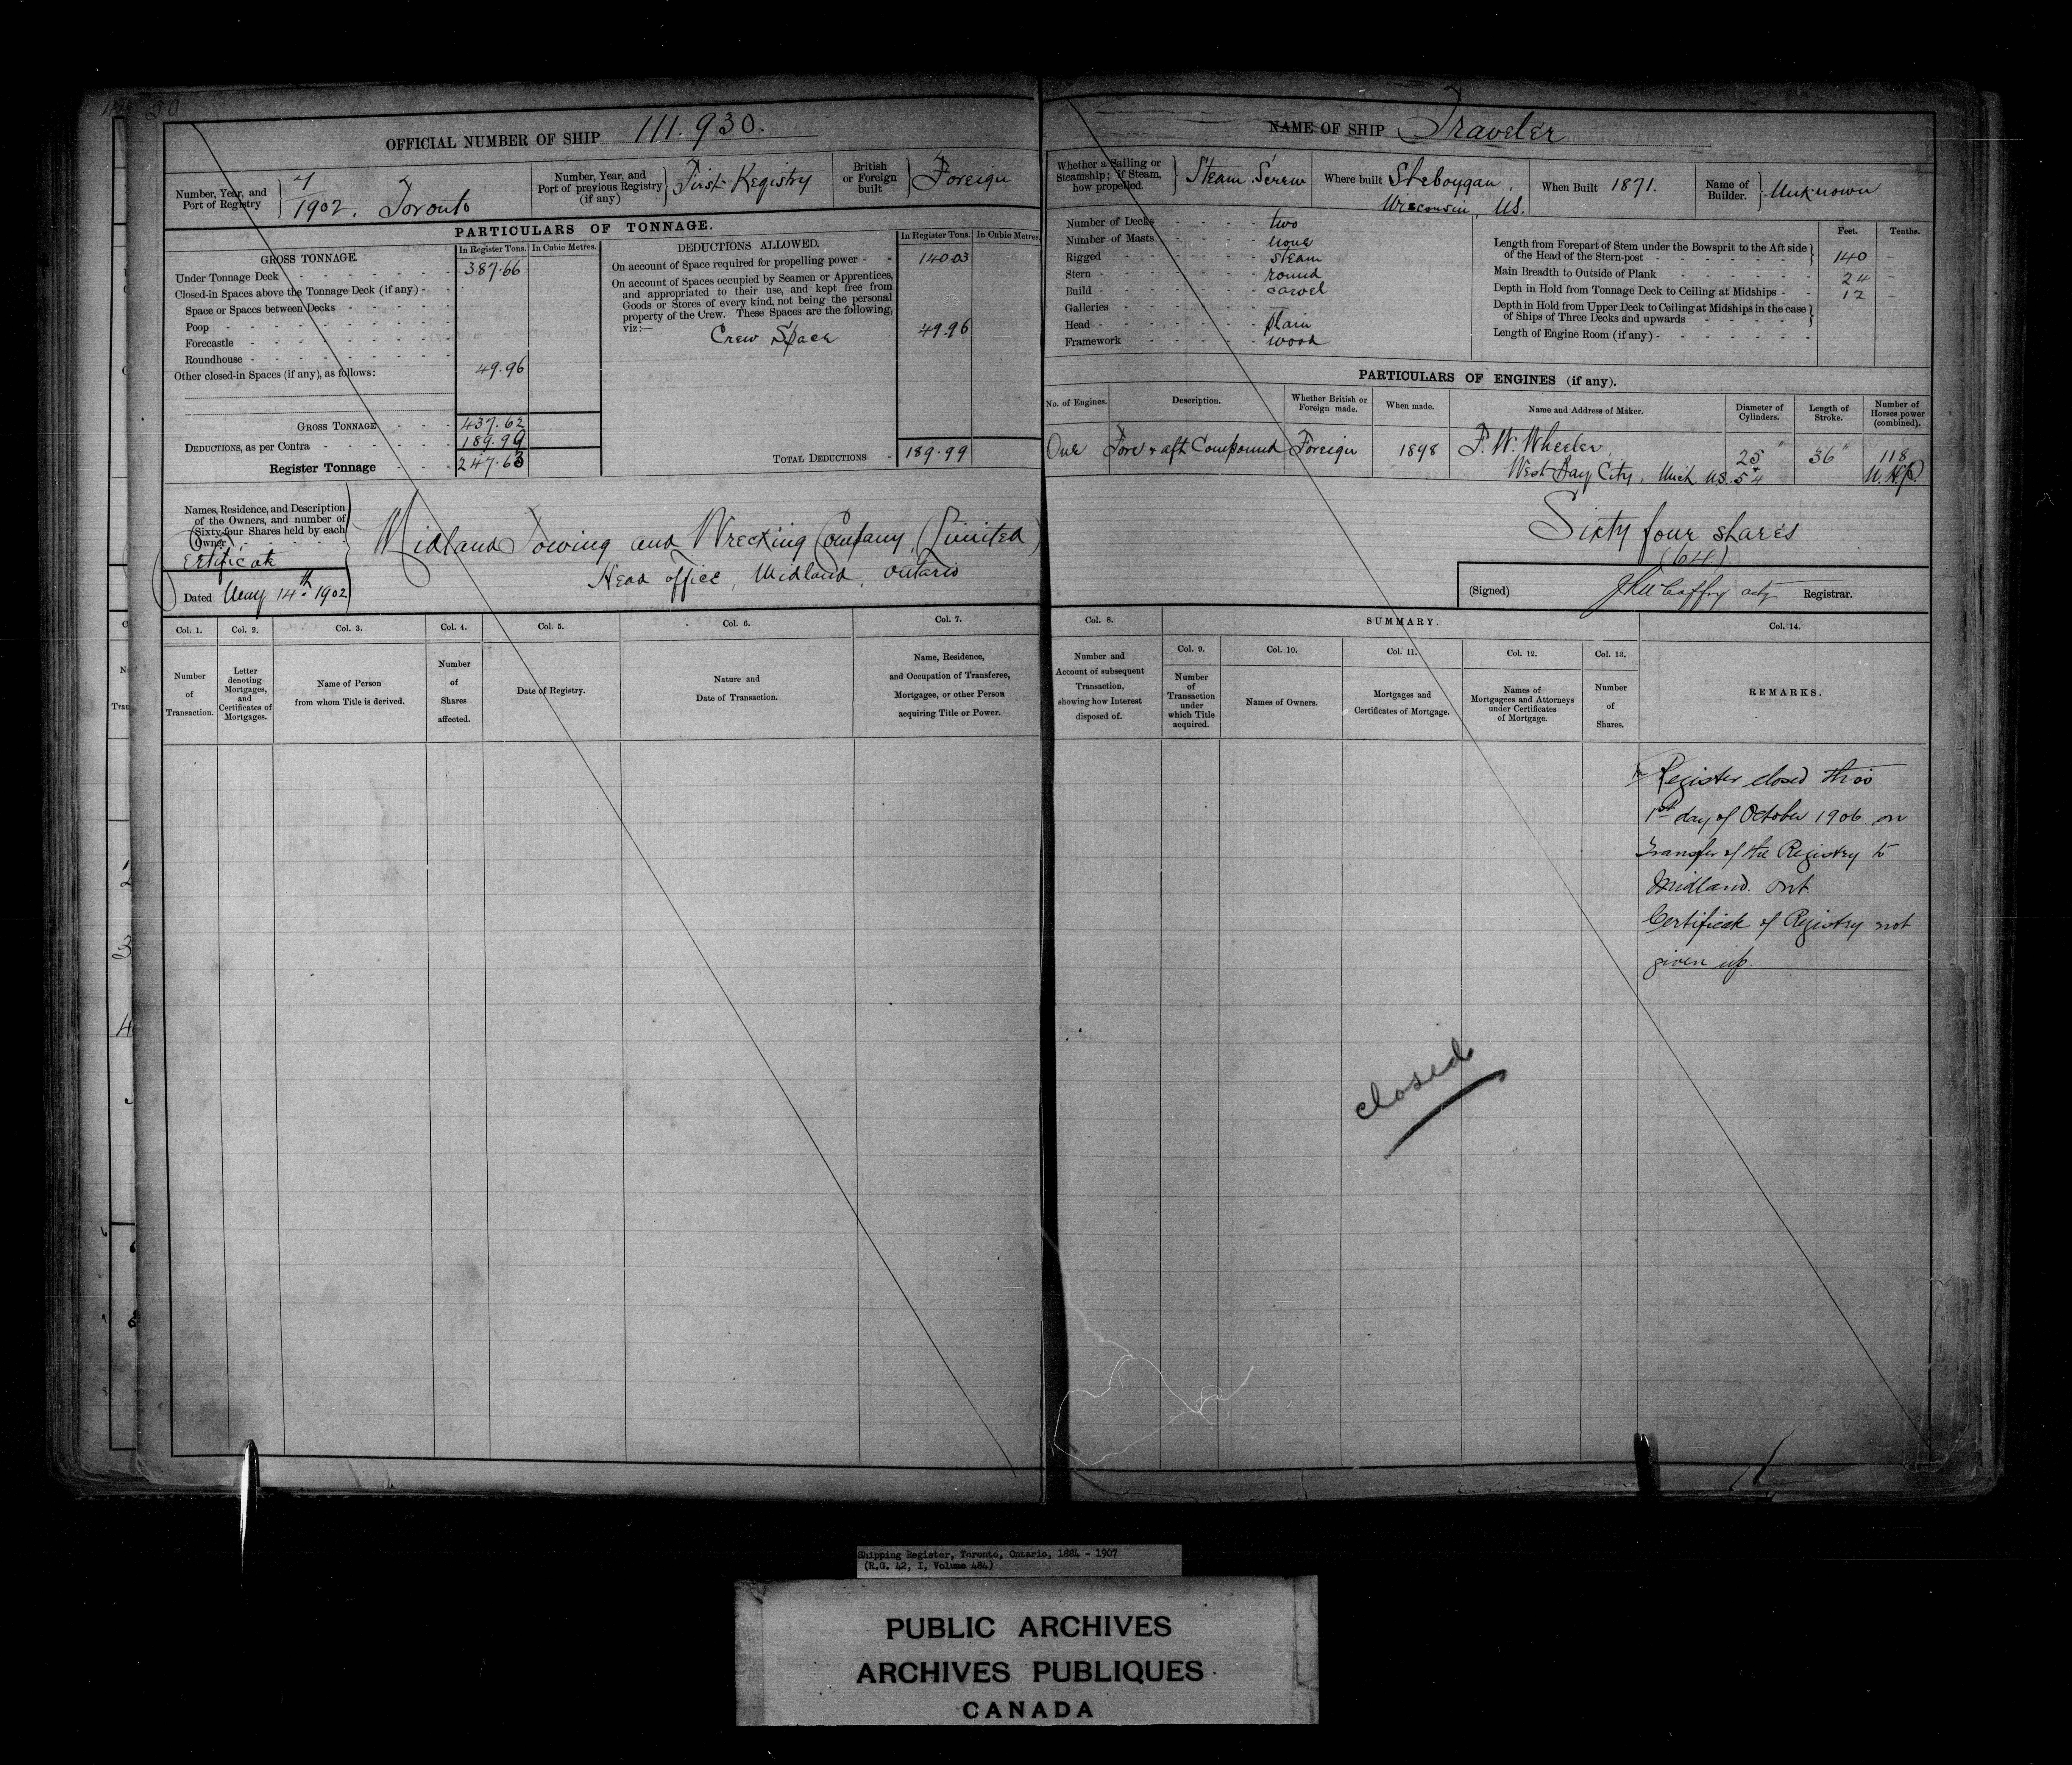 50
OFFICIAL NUMBER OF SHIP 111.930.
Number, Year, and
Port of Registry
4
1902. Toronto
Number, Year, and
Port of previous Registry
(if any)
First Registry
British
or Foreign
built
Foreign
PARTICULARS OF TONNAGE.
GROSS TONNAGE.
In Register Tons.
In Cubic Metres.
Under Tonnage Deck 387.66
Closed-in Spaces above the Tonnage Deck (if any)
Space or Spaces between Decks
Poop
Forecastle
Roundhouse
Other closed-in Spaces (if any), as follows: 49.96
GROSS TONNAGE 437.62
DEDUCTIONS, as per Contra 189.99
Register Tonnage 247.63
DEDUCTIONS ALLOWED.
In Register Tons.
In Cubic Metres.
On account of Space required for propelling power 140.03
On account of Spaces occupied by Seamen or Apprentices,
and appropriated to their use, and kept free from
Goods or Stores of every kind, not being the personal
property of the Crew. These Spaces are the following,
viz:—
Crew Space 49.96
TOTAL DEDUCTIONS 189.99
Names, Residence, and Description
of the Owners, and number of
Sixty-four Shares held by each
Owner
Certificate
Dated May 14th 1902
Midland Towing and Wrecking Company (Limited)
Head office, Midland, Ontario
Col. 1.
Col. 2.
Col. 3.
Col. 4.
Col. 5.
Col. 6.
Col. 7.
Number
of
Transaction.
Letter
denoting
Mortgages,
and
Certificates of
Mortgages.
Name of Person
from whom Title is derived.
Number
of
Shares
affected.
Date of Registry.
Nature and
Date of Transaction.
Name, Residence,
and Occupation of Transferee,
Mortgagee, or other Person
acquiring Title or Power.
NAME OF SHIP Traveler
Whether a Sailing or
Steamship; if Steam,
how propelled.
Steam Screw
Where built Sheboygan,
Wisconsin, US.
When Built 1871.
Name of
Builder.
Unknown
Number of Decks two
Number of Masts none
Rigged steam
Stern round
Build carvel
Galleries
Head plain
Framework wood
Feet.
Tenths.
Length from Forepart of Stem under the Bowsprit to the Aft side
of the Head of the Stern-post 140 -
Main Breadth to Outside of Plank 24 -
Depth in Hold from Tonnage Deck to Ceiling at Midships 12 -
Depth in Hold from Upper Deck to Ceiling at Midships in the case
of Ships of Three Decks and upwards
Length of Engine Room (if any)
PARTICULARS OF ENGINES (if any).
No. of Engines.
Description.
Whether British or
Foreign made.
When made.
Name and Address of Maker.
Diameter of
Cylinders.
Length of
Stroke.
Number of
Horses power
(combined).
One
Fore & aft Compound
Foreign
1898
F. W. Wheeler,
West Bay City, Mich. US.
25"
54
36"
118
N.H.P.
Sixty four shares
(64)
(Signed)
acty Registrar.
Col. 8.
SUMMARY.
Col. 14.
Col. 9.
Col. 10.
Col. 11.
Col. 12.
Col. 13.
Number and
Account of subsequent
Transaction,
showing how Interest
disposed of.
Number
of
Transaction
under
which Title
acquired.
Names of Owners.
Mortgages and
Certificates of Mortgage.
Names of
Mortgagees and Attorneys
under Certificates
of Mortgage.
Number
of
Shares.
REMARKS.
Register closed this
1st day of October 1906 on
Transfer of the Registry to
Midland. Ont.
Certificate of Registry not
given up.
closed
Shipping Register, Toronto, Ontario, 1884 - 1907
(R.G. 42, I, Volume 484)
PUBLIC ARCHIVES
ARCHIVES PUBLIQUES
CANADA